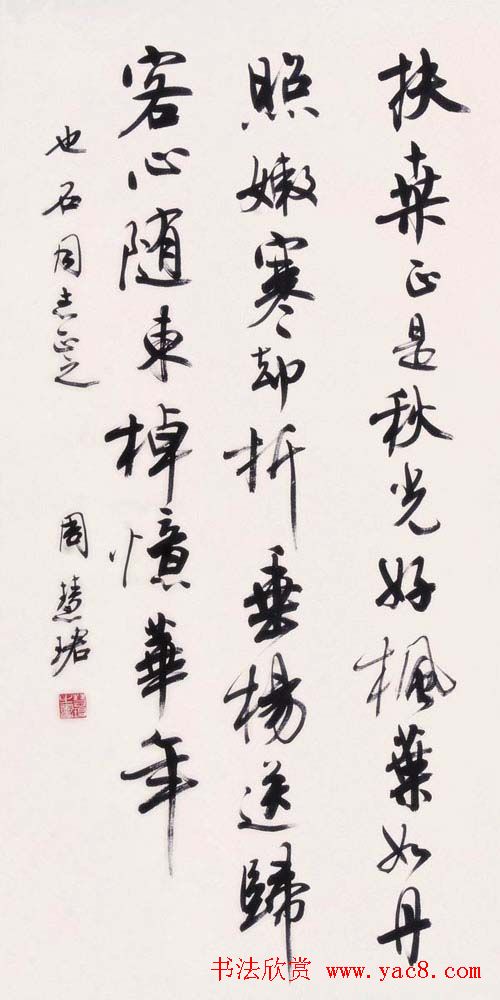 扶桒正是秋光好楓葉如丹
照嫩寒却折垂楊送歸
客心随東棹憶華年
也石同志正之 周慧珺
书法欣赏 www.yac8.com